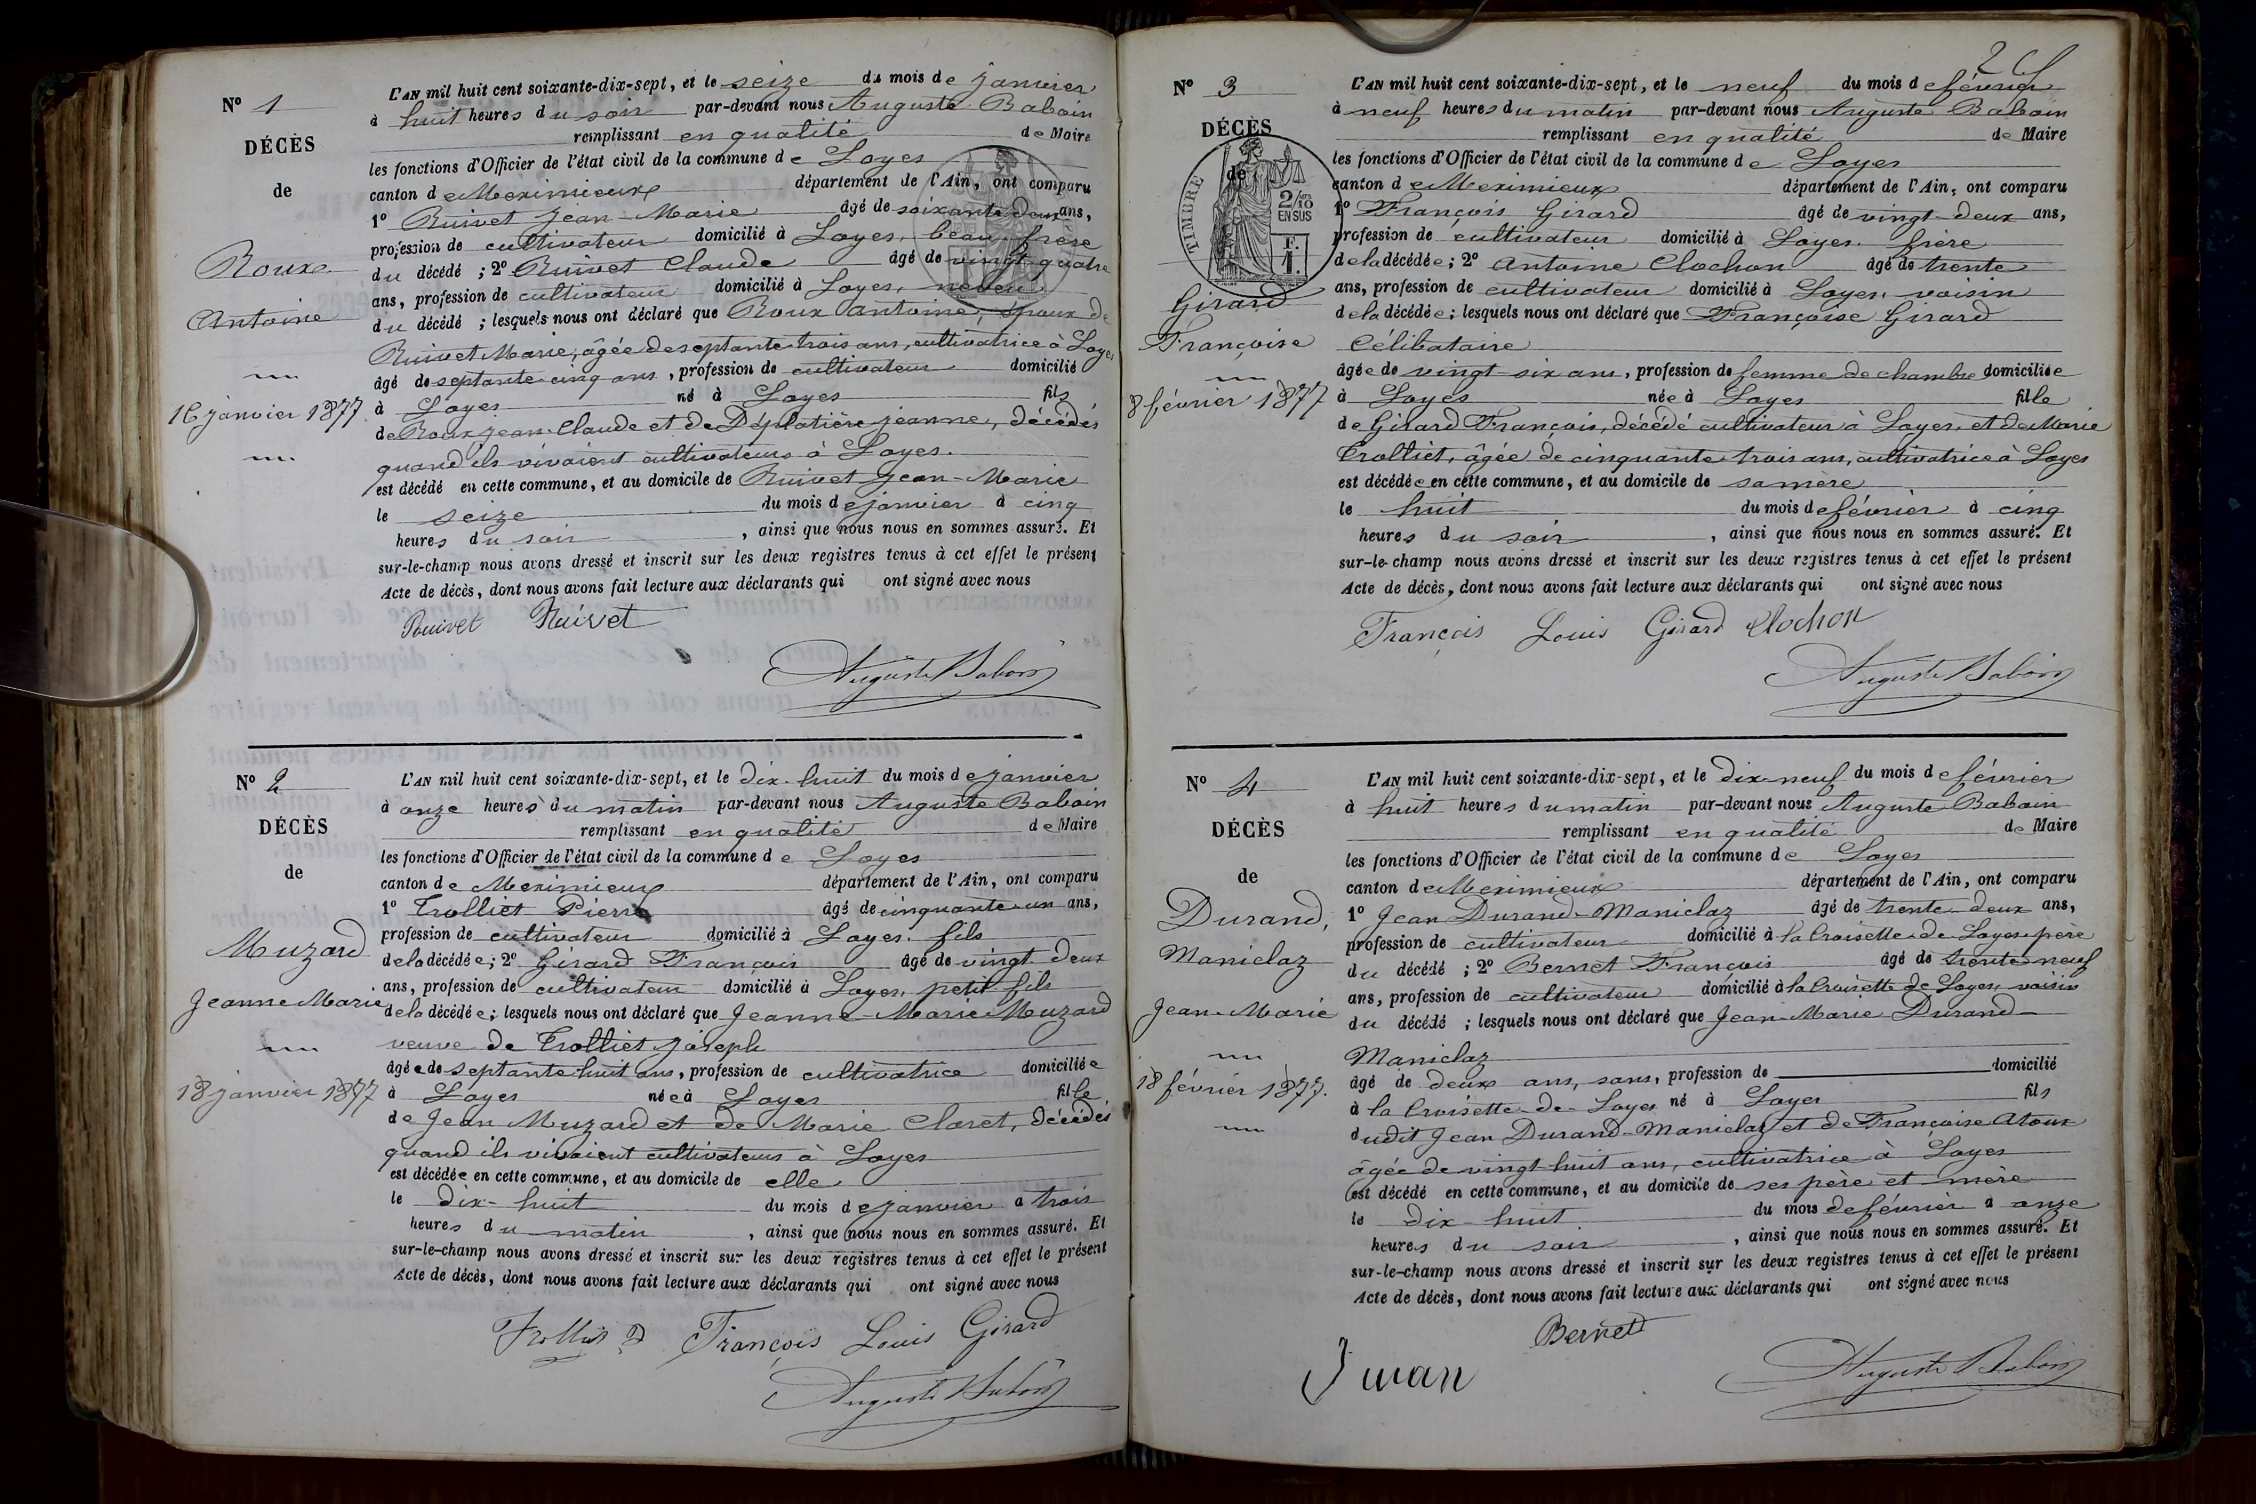 N° 1
DÉCÈS
de
Roux
Antoine
16 janvier 1877
L'AN mil huit cent soixante-dix-sept, et le seize du mois de janvier
à huit heures du soir par-devant nous Auguste Baboin
remplissant en qualité de Maire
les fonctions d'Officier de l'état civil de la commune de Loyes
canton de Meximieux département de l'Ain, ont comparu
1° Ruivet Jean-Marie âgé de soixante deux ans,
profession de cultivateur domicilié à Loyes, beau-frère
du décédé ; 2° Ruivet Claude âgé de vingt quatre
ans, profession de cultivateur domicilié à Loyes, neveu
du décédé ; lesquels nous ont déclaré que Roux Antoine, époux de
Ruivet Marie, âgée de septante trois ans, cultivatrice à Loyes
âgé de septante cinq ans, profession de cultivateur domicilié
à Loyes né à Loyes fils
de Roux Jean-Claude et de Déplatière Jeanne, décédés
quand ils vivaient cultivateurs à Loyes.
est décédé en cette commune, et au domicile de Ruivet Jean-Marie
le seize du mois de janvier à cinq
heures du soir, ainsi que nous nous en sommes assuré. Et
sur-le-champ nous avons dressé et inscrit sur les deux registres tenus à cet effet le présent
Acte de décès, dont nous avons fait lecture aux déclarants qui ont signé avec nous
Ruivet Ruivet
Auguste Baboin
N° 2
DÉCÈS
de
Muzard
Jeanne Marie
18 janvier 1877
L'AN mil huit cent soixante-dix-sept, et le dix-huit du mois de janvier
à onze heures du matin par-devant nous Auguste Baboin
remplissant en qualité de Maire
les fonctions d'Officier de l'état civil de la commune de Loyes
canton de Meximieux département de l'Ain, ont comparu
1° Trolliet Pierre âgé de cinquante-un ans,
profession de cultivateur domicilié à Loyes. fils
de la décédée; 2° Girard François âgé de vingt deux
ans, profession de cultivateur domicilié à Loyes, petit fils
de la décédée; lesquels nous ont déclaré que Jeanne-Marie Muzard
veuve de Trolliet Joseph
âgée de septante-huit ans, profession de cultivatrice domiciliée
à Loyes née à Loyes fille
de Jean Muzard et de Marie Claret, décédés
quand ils vivaient cultivateurs à Loyes
est décédée en cette commune, et au domicile de elle
le dix-huit du mois de janvier à trois
heures du matin, ainsi que nous nous en sommes assuré. Et
sur-le-champ nous avons dressé et inscrit sur les deux registres tenus à cet effet le présent
Acte de décès, dont nous avons fait lecture aux déclarants qui ont signé avec nous
François Louis Girard
Auguste Baboin
N° 3
DÉCÈS
de
TIMBRE
2/10 EN SUS
1 F.
Girard
Françoise
8 février 1877
L'AN mil huit cent soixante-dix-sept, et le neuf du mois de février
à neuf heures du matin par-devant nous Auguste Baboin
remplissant en qualité de Maire
les fonctions d'Officier de l'état civil de la commune de Loyes
canton de Meximieux département de l'Ain, ont comparu
1° François Girard âgé de vingt-deux ans,
profession de cultivateur domicilié à Loyes. frère
de la décédée; 2° Antoine Clochon âgé de trente
ans, profession de cultivateur domicilié à Loyes. voisin
de la décédée; lesquels nous ont déclaré que Françoise Girard
Célibataire
âgée de vingt-six ans, profession de femme de chambre domiciliée
à Loyes née à Loyes fille
de Girard François, décédé cultivateur à Loyes, et de Marie
Trolliet, âgée de cinquante trois ans, cultivatrice à Loyes
est décédée en cette commune, et au domicile de sa mère
le huit du mois de février à cinq
heures du soir, ainsi que nous nous en sommes assuré. Et
sur-le-champ nous avons dressé et inscrit sur les deux registres tenus à cet effet le présent
Acte de décès, dont nous avons fait lecture aux déclarants qui ont signé avec nous
François Louis Girard Clochon
Auguste Baboin
N° 4
DÉCÈS
de
Durand,
Maniclaz
Jean-Marie
18 février 1877.
L'AN mil huit cent soixante-dix-sept, et le dix-neuf du mois de février
à huit heures du matin par-devant nous Auguste Baboin
remplissant en qualité de Maire
les fonctions d'Officier de l'état civil de la commune de Loyes
canton de Meximieux département de l'Ain, ont comparu
1° Jean Durand-Maniclaz âgé de trente-deux ans,
profession de cultivateur domicilié à la Croisette de Loyes. père
du décédé ; 2° Bernet François âgé de trente neuf
ans, profession de cultivateur domicilié à la Croisette de Loyes, voisin
du décédé ; lesquels nous ont déclaré que Jean-Marie Durand-
Maniclaz
âgé de deux ans, sans, profession de domicilié
à la Croisette-de-Loyes né à Loyes fils
dudit Jean Durand-Maniclaz et de Françoise Atoux
âgée de vingt-huit ans, cultivatrice à Loyes
est décédé en cette commune, et au domicile de ses père et mère
le dix-huit du mois de février à onze
heures du soir, ainsi que nous nous en sommes assuré. Et
sur-le-champ nous avons dressé et inscrit sur les deux registres tenus à cet effet le présent
Acte de décès, dont nous avons fait lecture aux déclarants qui ont signé avec nous
Bernet
Auguste Baboin